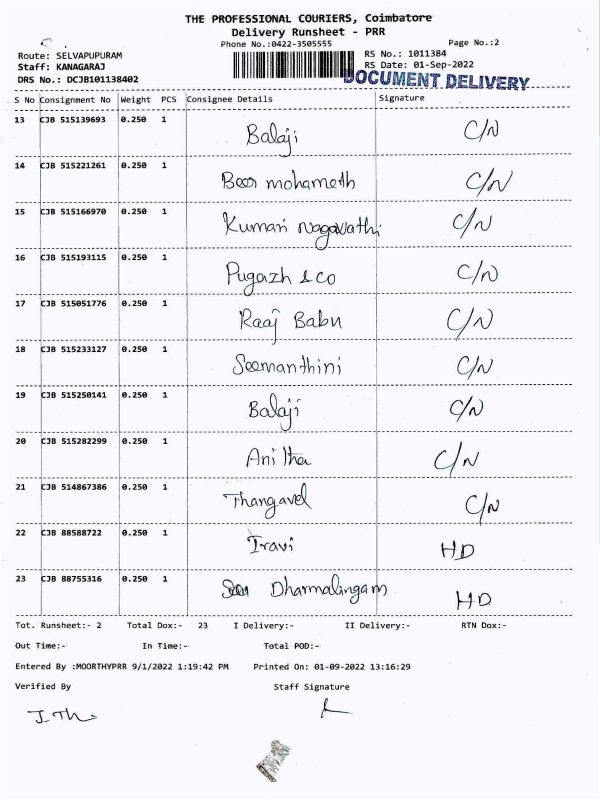 THE PROFESSIONAL COURIERS, Coimbatore
Delivery Runsheet - PRR
Phone No.:0422-3505555 Page No.:2
Route: SELVAPUPURAM RS No.: 1011384
Staff: KANAGARAJ RS Date: 01-Sep-2022
DRS No.: DCJB101138402 DOCUMENT DELIVERY
S No Consignment No Weight PCS Consignee Details Signature
13 CJB 515139693 0.250 1 Balaji C/N
14 CJB 515221261 0.250 1 Beer mohameth C/N
15 CJB 515166970 0.250 1 Kumari nagavathi C/N
16 CJB 515193115 0.250 1 Pugazh & co C/N
17 CJB 515051776 0.250 1 Raaj Babu C/N
18 CJB 515233127 0.250 1 Seemanthini C/N
19 CJB 515250141 0.250 1 Balaji C/N
20 CJB 515282299 0.250 1 Anitha C/N
21 CJB 514867386 0.250 1 Thangavel C/N
22 CJB 88588722 0.250 1 Iravi HD
23 CJB 88755316 0.250 1 Dharmalingam HD
Tot. Runsheet:- 2 Total Dox:- 23 I Delivery:- II Delivery:- RTN Dox:-
Out Time:- In Time:- Total POD:-
Entered By :MOORTHYPRR 9/1/2022 1:19:42 PM Printed On: 01-09-2022 13:16:29
Verified By Staff Signature